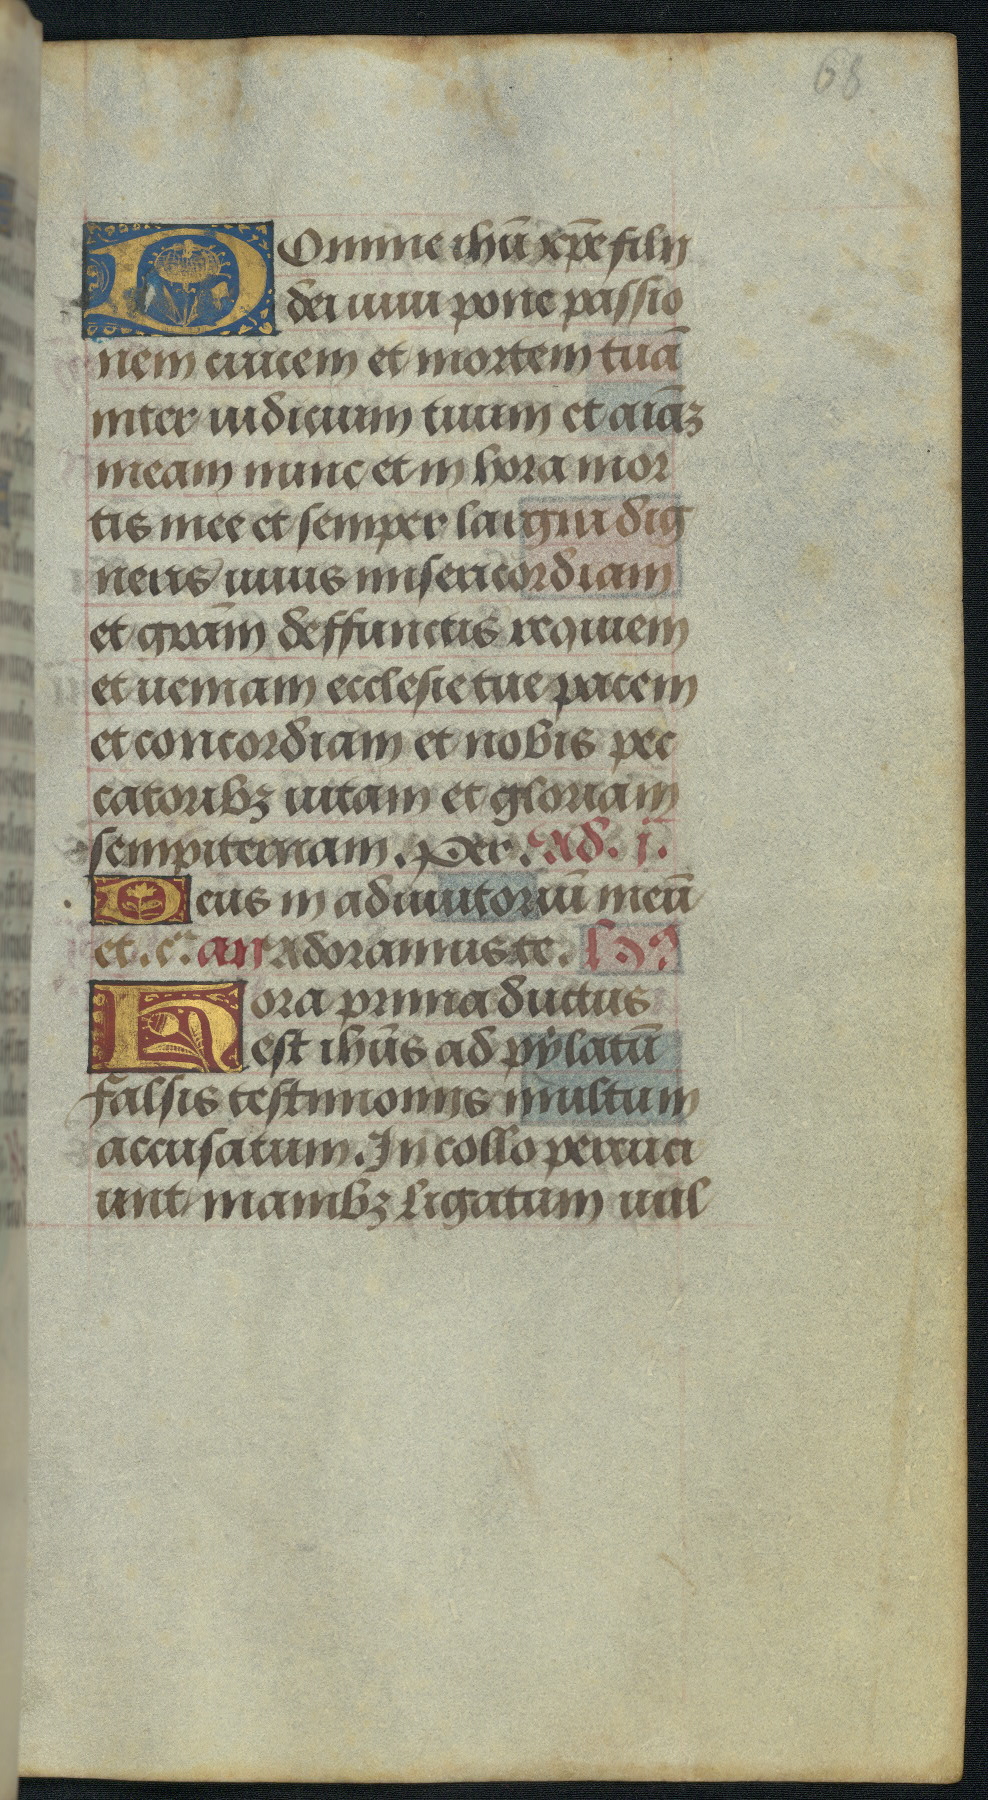 68
Domine ihū xp̄e filii
dei uiui pone passio
nem crucem et mortem tuā
inter iudicium tuum et aīaʒ
meam nunc et in hora mor
tis mee et semper largiri dig
neris uiuis misericordiam
et grām deffunctis requiem
et ueniam ecclesie tue pacem
et concordiam et nobis pec
catoribʒ uitam et gloriam
sempiternam. Per. Ad. j.
Deus in adiutoriū meū
et. c̄. an Adoramus te.
Hora prima ductus
est ihūs ad pẏlatū
falsis testimoniis multum
accusatum. In collo percuci
unt manibʒ ligatum uul